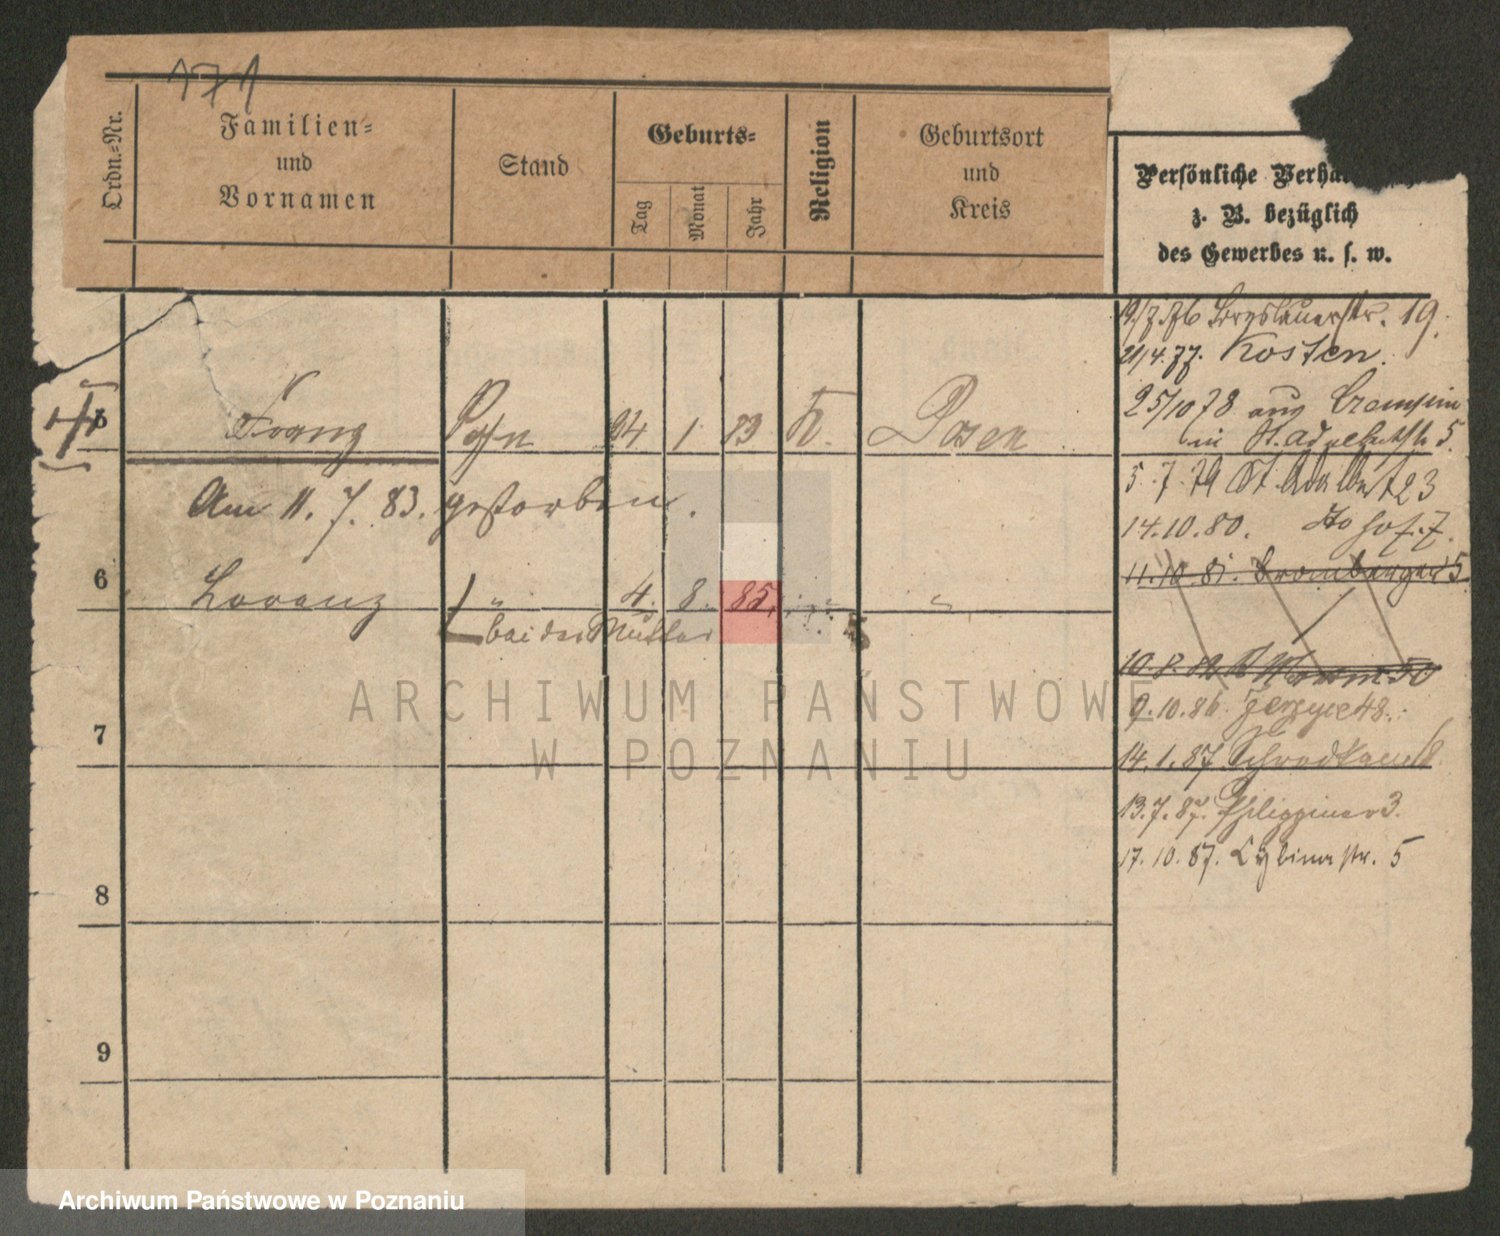 171
Ordn.-Nr.
Familien-
und
Vornamen
Stand
Geburts-
Tag
Monat
Jahr
Religion
Geburtsort
und
Kreis
Persönliche
z. B. bezüglich
des Gewerbes u. s. w.
19/7.76 Breslauerstr. 19.
21/4.77. Kosten.
25/10 78 aus
in St. Adalbertstr 5.
5.7.79 St. Adalbert 23
14.10.80.
11.10.81. Bromberger 5
5 Franz Sohn 24 1 73 K. Posen
Am 11. 7. 83. gestorben.
6 Lorenz " 4. 8. 85. " "
bei der Mutter
9.10.86. Jerzyce 48.
14.1.87. Schrodka
13.7.87. Philippiner 3.
17.10.87. Cybinastr. 5
7
8
9
ARCHIWUM PAŃSTWOWE
W POZNANIU
Archiwum Państwowe w Poznaniu